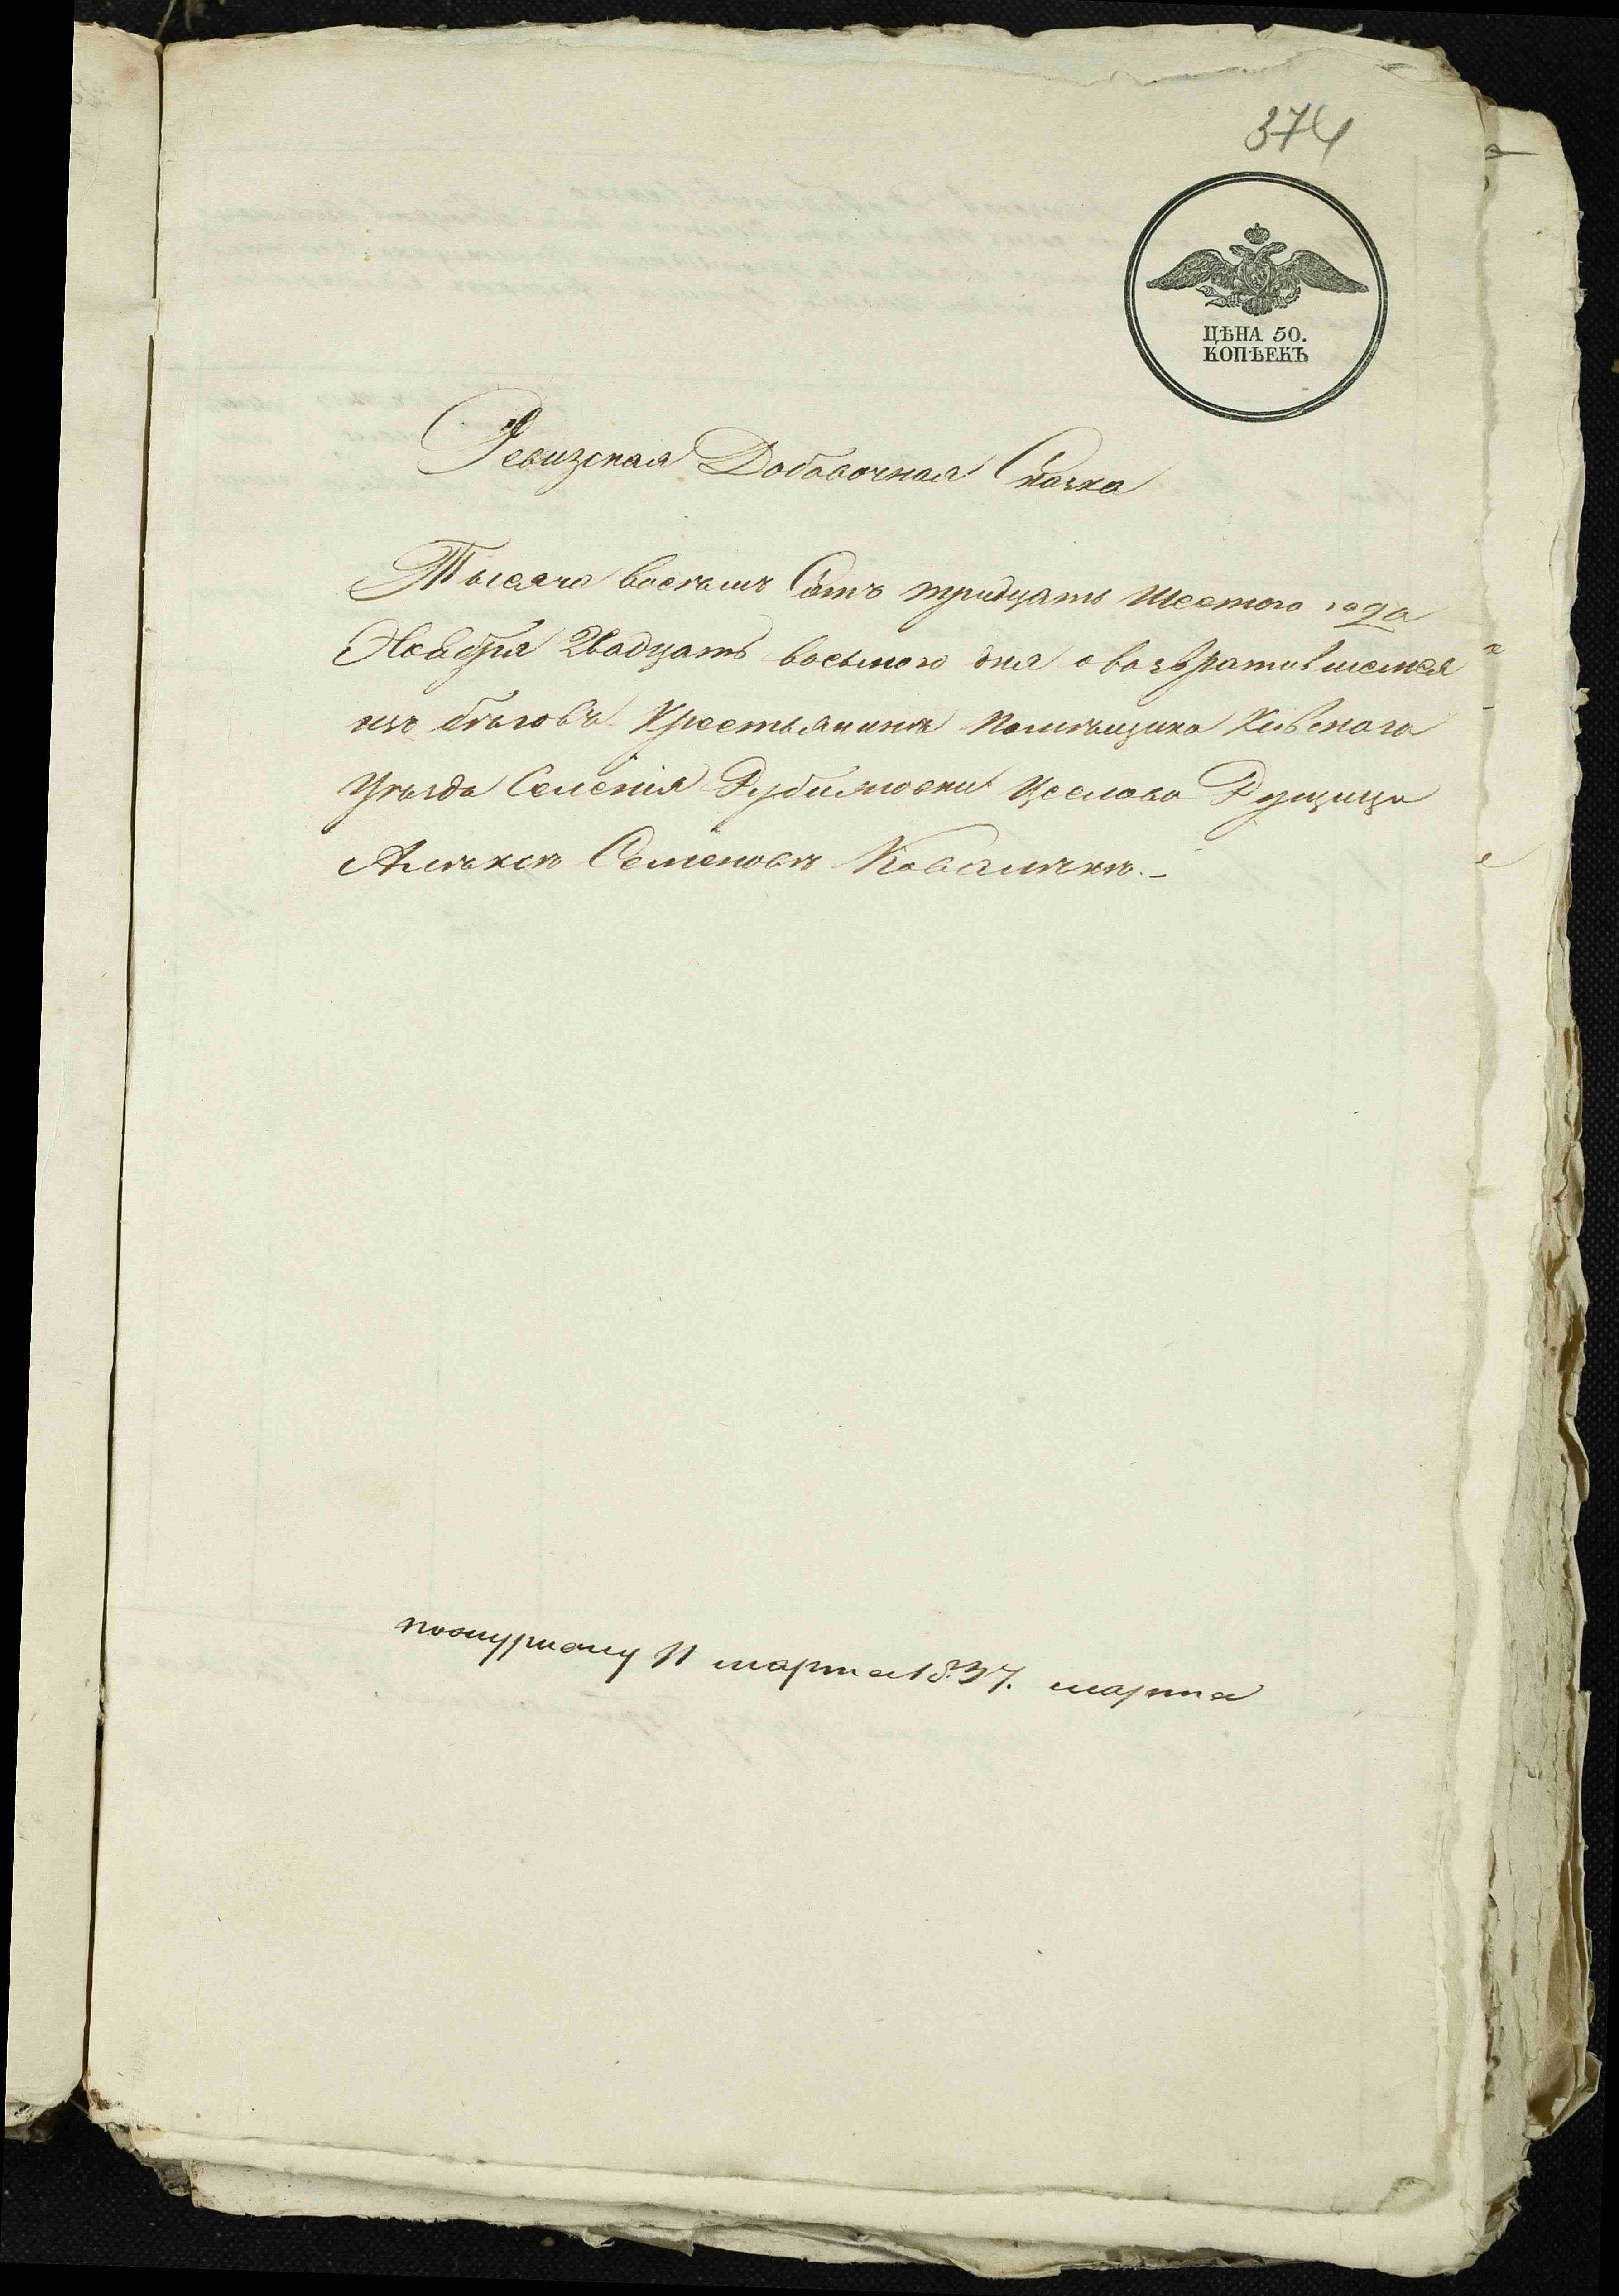 374
ЦѢНА 50.
КОПѢЕКЪ
Ревизская Добавочная Сказка
Тысяча восемь Сотъ тридцать шестого года
Ноября двадцать восьмого дня о возвратившемся
изъ бѣговъ Крестьянинѣ помѣщика Кіевскаго
уѣзда Селенія Рубижовки Цеслава Рущица
Алексѣ Семеновѣ Ковалѣнкѣ.
11 марта 1837. марта